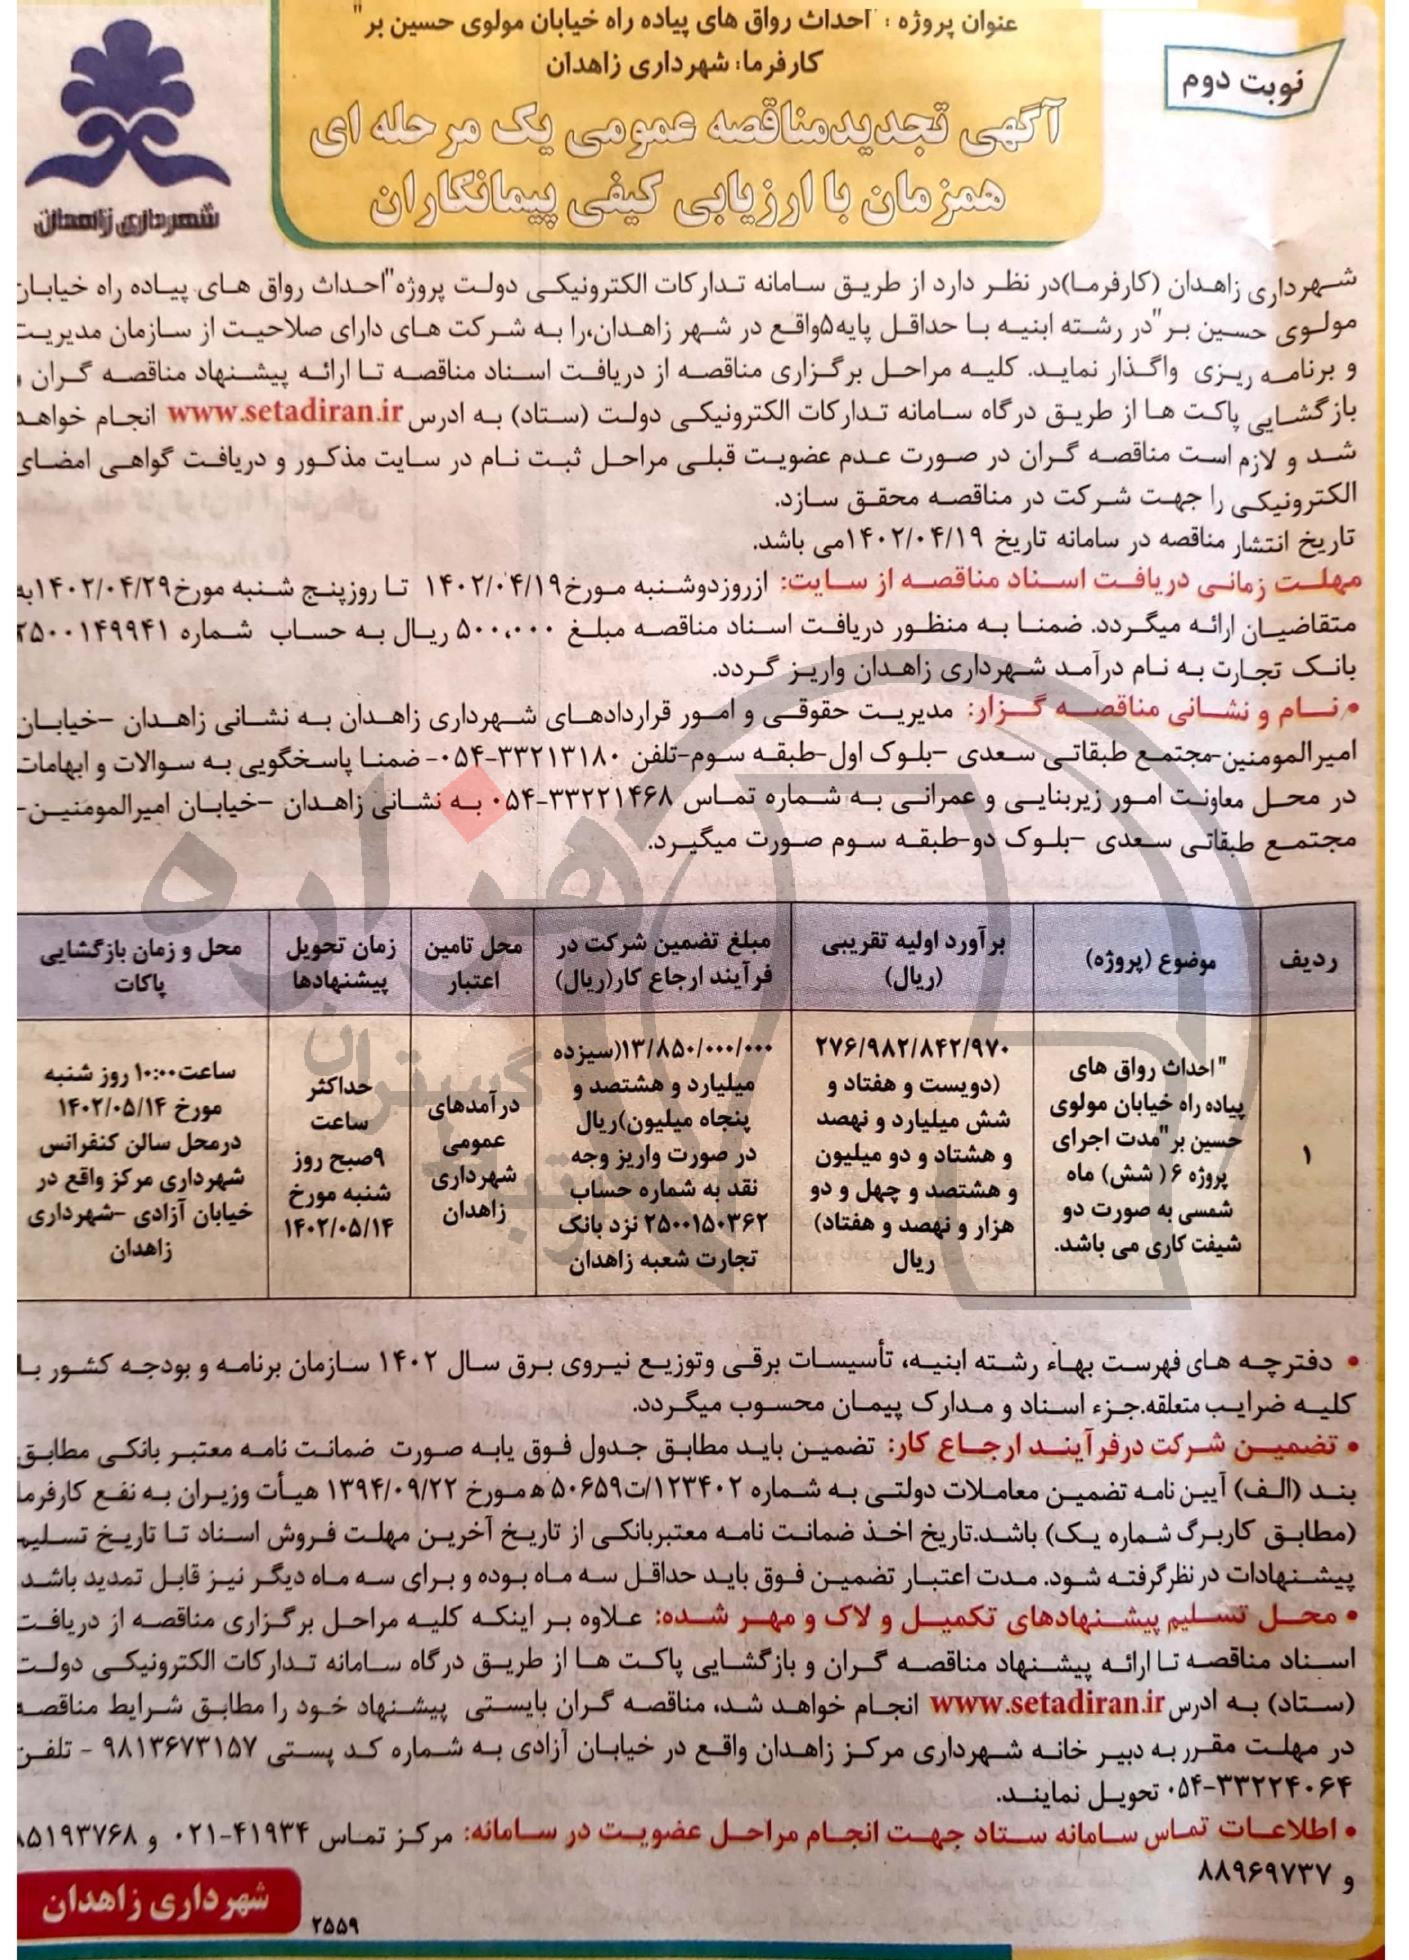 عنوان پروژه : "احداث رواق های پیاده راه خیابان مولوی حسین بر"
کارفرما: شهرداری زاهدان
نوبت دوم
آگهی تجدیدمناقصه عمومی یک مرحله ای
همزمان با ارزیابی کیفی پیمانکاران
شهرداری زاهدان
شهرداری زاهدان (کارفرما)در نظر دارد از طریق سامانه تدارکات الکترونیکی دولت پروژه"احداث رواق های پیاده راه خیابان
مولوی حسین بر"در رشته ابنیه با حداقل پایه۵واقع در شهر زاهدان،را به شرکت های دارای صلاحیت از سازمان مدیریت
و برنامه ریزی واگذار نماید. کلیه مراحل برگزاری مناقصه از دریافت اسناد مناقصه تا ارائه پیشنهاد مناقصه گران و
بازگشایی پاکت ها از طریق درگاه سامانه تدارکات الکترونیکی دولت (ستاد) به ادرس www.setadiran.ir انجام خواهد
شد و لازم است مناقصه گران در صورت عدم عضویت قبلی مراحل ثبت نام در سایت مذکور و دریافت گواهی امضای
الکترونیکی را جهت شرکت در مناقصه محقق سازد.
تاریخ انتشار مناقصه در سامانه تاریخ ۱۴۰۲/۰۴/۱۹می باشد.
مهلت زمانی دریافت اسناد مناقصه از سایت: ازروزدوشنبه مورخ۱۴۰۲/۰۴/۱۹ تا روزپنج شنبه مورخ۱۴۰۲/۰۴/۲۹به
متقاضیان ارائه میگردد. ضمنا به منظور دریافت اسناد مناقصه مبلغ ۵۰۰،۰۰۰ ریال به حساب شماره ۲۵۰۰۱۴۹۹۴۱
بانک تجارت به نام درآمد شهرداری زاهدان واریز گردد.
• نام و نشانی مناقصه گزار: مدیریت حقوقی و امور قراردادهای شهرداری زاهدان به نشانی زاهدان –خیابان
امیرالمومنین-مجتمع طبقاتی سعدی –بلوک اول-طبقه سوم-تلفن ۳۳۲۱۳۱۸۰-۰۵۴- ضمنا پاسخگویی به سوالات و ابهامات
در محل معاونت امور زیربنایی و عمرانی به شماره تماس ۳۳۲۲۱۴۶۸-۰۵۴ به نشانی زاهدان –خیابان امیرالمومنین-
مجتمع طبقاتی سعدی –بلوک دو-طبقه سوم صورت میگیرد.
ردیف
موضوع (پروژه)
برآورد اولیه تقریبی
(ریال)
مبلغ تضمین شرکت در
فرآیند ارجاع کار(ریال)
محل تامین
اعتبار
زمان تحویل
پیشنهادها
محل و زمان بازگشایی
پاکات
۱
"احداث رواق های
پیاده راه خیابان مولوی
حسین بر"مدت اجرای
پروژه ۶ (شش) ماه
شمسی به صورت دو
شیفت کاری می باشد.
۲۷۶/۹۸۲/۸۴۲/۹۷۰
(دویست و هفتاد و
شش میلیارد و نهصد
و هشتاد و دو میلیون
و هشتصد و چهل و دو
هزار و نهصد و هفتاد)
ریال
۱۳/۸۵۰/۰۰۰/۰۰۰(سیزده
میلیارد و هشتصد و
پنجاه میلیون)ریال
در صورت واریز وجه
نقد به شماره حساب
۲۵۰۰۱۵۰۳۶۲ نزد بانک
تجارت شعبه زاهدان
درآمدهای
عمومی
شهرداری
زاهدان
حداکثر
ساعت
۹صبح روز
شنبه مورخ
۱۴۰۲/۰۵/۱۴
ساعت۱۰:۰۰ روز شنبه
مورخ ۱۴۰۲/۰۵/۱۴
درمحل سالن کنفرانس
شهرداری مرکز واقع در
خیابان آزادی –شهرداری
زاهدان
• دفترچه های فهرست بهاء رشته ابنیه، تأسیسات برقی وتوزیع نیروی برق سال ۱۴۰۲ سازمان برنامه و بودجه کشور با
کلیه ضرایب متعلقه.جزء اسناد و مدارک پیمان محسوب میگردد.
• تضمین شرکت درفرآیند ارجاع کار: تضمین باید مطابق جدول فوق یابه صورت ضمانت نامه معتبر بانکی مطابق
بند (الف) آیین نامه تضمین معاملات دولتی به شماره ۱۲۳۴۰۲/ت۵۰۶۵۹ ه مورخ ۱۳۹۴/۰۹/۲۲ هیأت وزیران به نفع کارفرما
(مطابق کاربرگ شماره یک) باشد.تاریخ اخذ ضمانت نامه معتبربانکی از تاریخ آخرین مهلت فروش اسناد تا تاریخ تسلیم
پیشنهادات در نظرگرفته شود. مدت اعتبار تضمین فوق باید حداقل سه ماه بوده و برای سه ماه دیگر نیز قابل تمدید باشد.
• محل تسلیم پیشنهادهای تکمیل و لاک و مهر شده: علاوه بر اینکه کلیه مراحل برگزاری مناقصه از دریافت
اسناد مناقصه تا ارائه پیشنهاد مناقصه گران و بازگشایی پاکت ها از طریق درگاه سامانه تدارکات الکترونیکی دولت
(ستاد) به ادرس www.setadiran.ir انجام خواهد شد، مناقصه گران بایستی پیشنهاد خود را مطابق شرایط مناقصه
در مهلت مقرر به دبیر خانه شهرداری مرکز زاهدان واقع در خیابان آزادی به شماره کد پستی ۹۸۱۳۶۷۳۱۵۷ - تلفن
۳۳۲۲۴۰۶۴-۰۵۴ تحویل نمایند.
• اطلاعات تماس سامانه ستاد جهت انجام مراحل عضویت در سامانه: مرکز تماس ۴۱۹۳۴-۰۲۱ و ۸۵۱۹۳۷۶۸
و ۸۸۹۶۹۷۳۷
شهرداری زاهدان
۲۵۵۹
هزاره
گستران